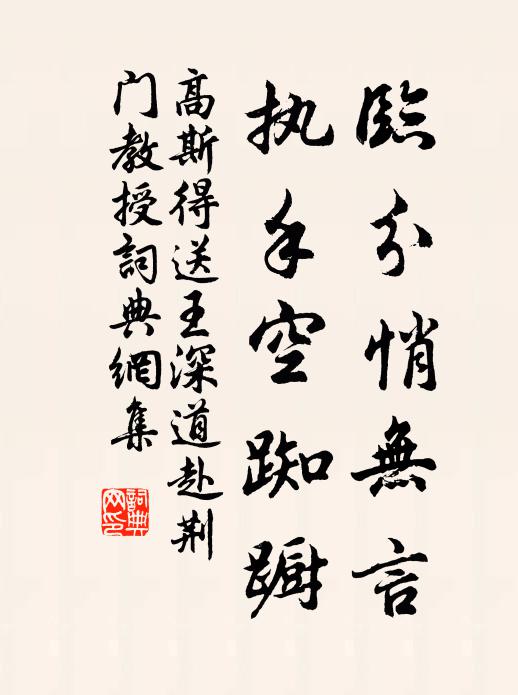 臨分悄無言
执手空踟蹰
高斯得送王深道赴荆
门教授詞典網集
詞典
网印